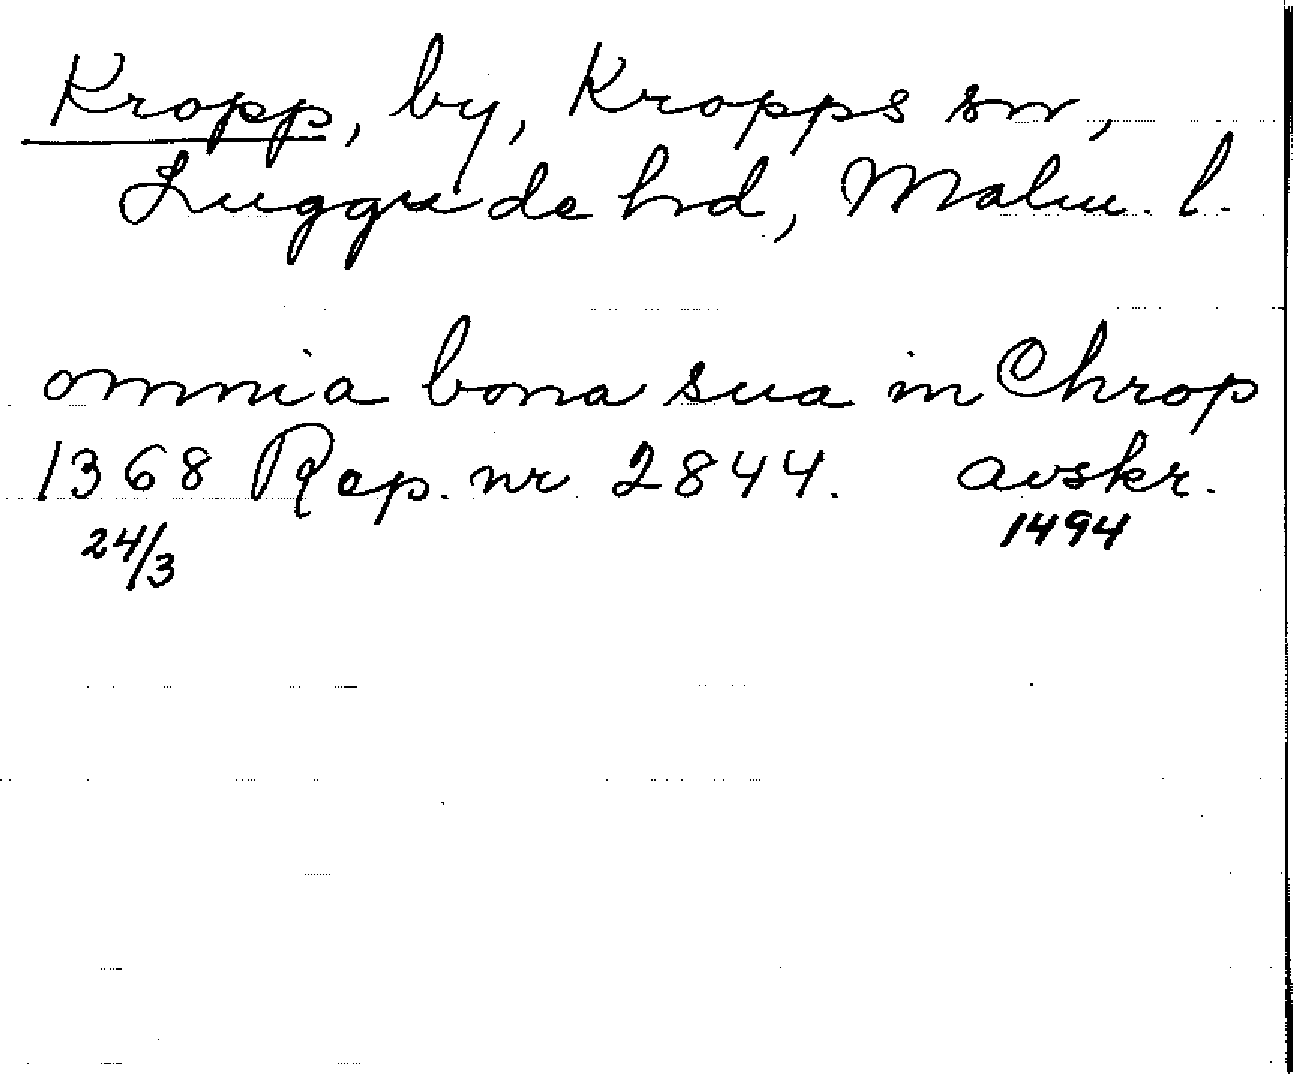 Kropp, by, Kropps sn,
Luggude hd, Malm. l.
omnia bona sua in Chrop
1368 Rep. nr 2844. avskr.
24/3 1494